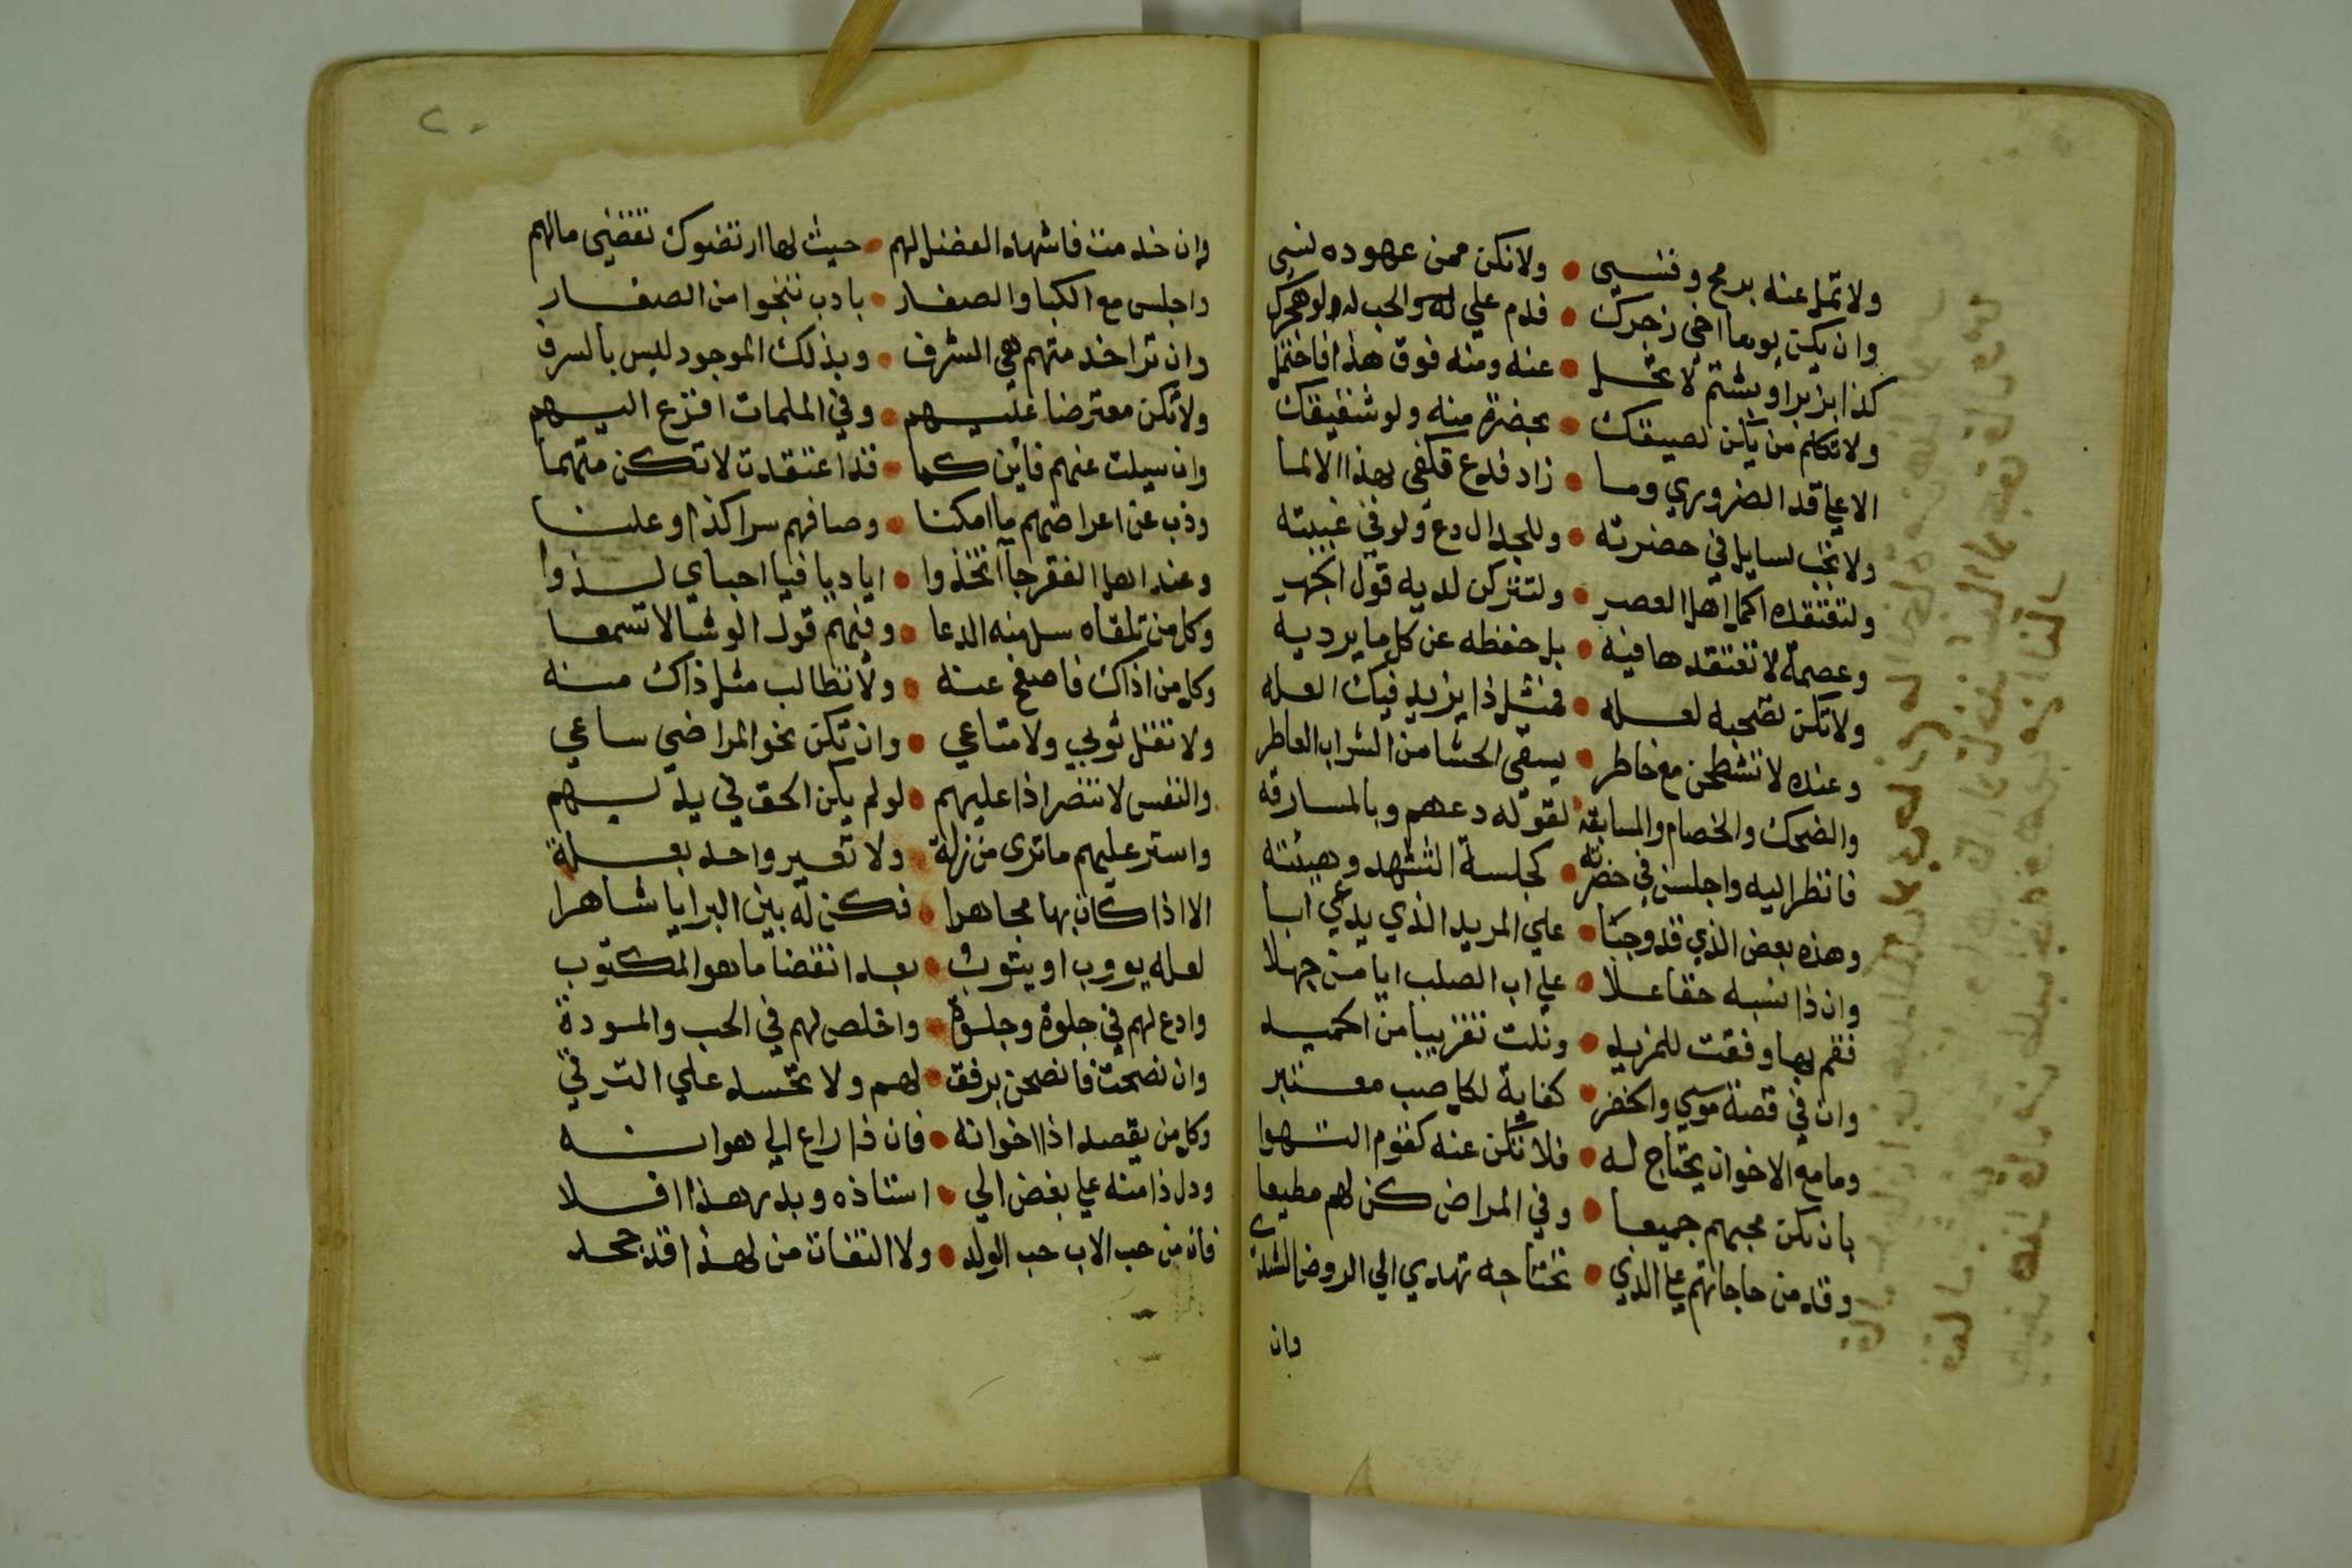 ولا تمل عنه برمح وقسي • ولا تكن ممن عهوده نسي
وان يكن يوما اخي زجرك • فدم علي له والحب له ولو هجرك
كذا بزبر او بشتم لا تحل • عنه ومنه فوق هذا فاحتمل
ولا تكلم من يكن لصيقك • بحضرة منه ولو شقيقك
الا علي قدر الضروري وما • زاد فدع تكفي بهذا الالما
ولا تجب لسايل في حضرته • وللجدال دع ولو في غيبته
ولتعتقده اكمل اهل العصر • ولتتركن لديه قول الجهر
وعصمة لا تعتقدها فيه • بل حفظه عن كل ما يرديه
ولا تكن تصحبه لعله • فمثل ذا يزيد فيك العله
وعنده لا تشطحن مع خاطر • يسقي الحشا من الشراب العاطر
والضحك والخصام والمسابقه • لقوله دعهم وبالمسارقه
فانظر اليه واجلسن في حضرته • كجلسة التشهد وهيئته
وهذه بعض الذي قد وجبا • علي المريد الذي يدعي ابا
وان ذا نسبه حقا علا • علي اب الصلب ايا من جهلا
فقم بها وفقت للمزيد • ونلت تقريبا من الحميد
وان في قصة موسي والخضر • كفاية لكل صب معتبر
وما مع الاخوان يحتاج له • فلا تكن عنه كقوم انتهوا
بان تكن محبهم جميعا • وفي المراض كن لهم مطيعا
وقدمن حاجاتهم علي الذي • تحتاجه تهدي الي الروض الشذي
وان
٢٠
وان خدمت فاشهد الفضل لهم • حيث لها ارتضوك تقضي مالهم
واجلس مع الكبا والصغار • بادب تنجوا من الصغار
وان ترا خدمتهم هي الشرف • وبذلك الموجود ليس بالسرف
ولا تكن معترضا عليهم • وفي الملمات افزع اليهم
وان سيلت عنهم فاين كما • قد اعتقدت لا تكن متهما
وذب عن اعراضهم ما امكنا • وصافهم سرا كذا وعلنا
وعند اهل الفقر جاآ اتخذوا • اياديا فيا احباي لذوا
وكل من تلقاه سل منه الدعا • وفيهم قول الوشا لا تسمعا
وكل من اذاك فاصفح عنه • ولا تطالب مثل ذاك منه
ولا تقل ثوبي ولا متاعي • وان تكن نحو المراضي ساعي
والنفس لا تنتصر اذا عليهم • لو لم يكن الحق في يديهم
واستر عليهم ما تري من زلة • ولا تعير واحد بعلة
الا اذا كان بها مجاهرا • فكن له بين البرايا شاهرا
لعله يووب او يتوب • بعد انقضا ما هو المكتوب
وادع لهم في جلوة وخلوة • واخلص لهم في الحب والمودة
وان نصحت فانصحن برفق • لهم ولا تحسد علي الترقي
وكل من يقصد اذا اخوانه • فان ذا راع الي هوانه
ودل ذا منه علي بغض الي • استاذه وبدر هذا افلا
فان من حب الاب حب الولد • ولا التفات من لهذا قد جحد